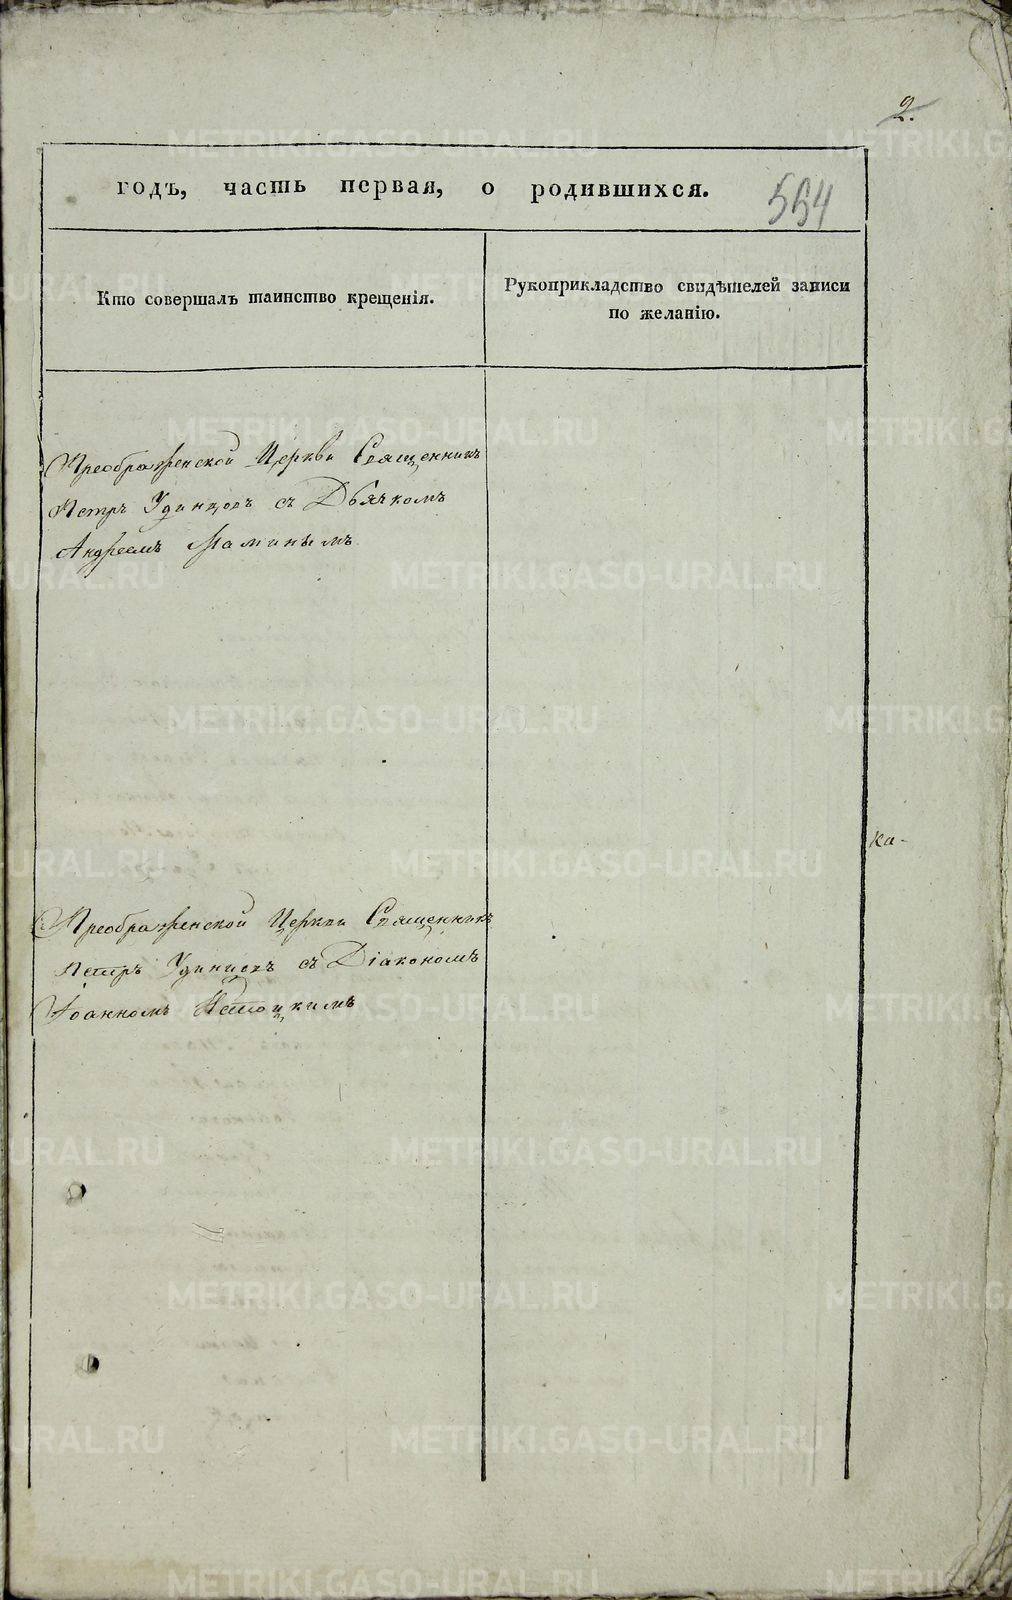 2.
годъ, часть первая, о родившихся.
554
Кто совершалъ таинство крещенія.
Рукоприкладство свидѣтелей записи
по желанію.
Преображенской Церкви Священникъ
Петръ Удинцовъ съ Дьячкомъ
Андреемъ Маминымъ
ка-
Преображенской Церкви Священникъ
Петръ Удинцовъ съ Діакономъ
Іоанномъ
METRIKI.GASO-URAL.RU